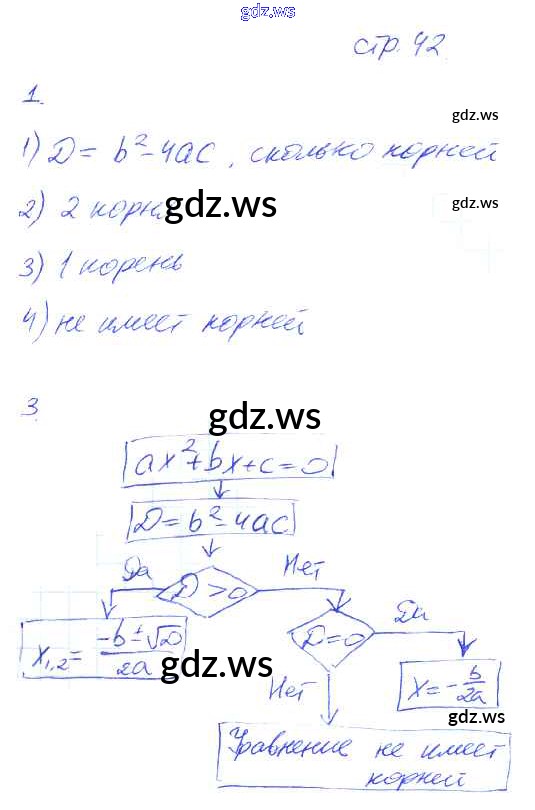 gdz.ws
стр. 42
1.
gdz.ws
1) D = b² - 4ac, сколько корней
2) 2 корня
gdz.ws
gdz.ws
3) 1 корень
4) не имеет корней
3.
gdz.ws
ax² + bx + c = 0
D = b² - 4ac
Да
Нет
D > 0
x₁,₂ = (-b ± √D) / 2a
D = 0
Да
gdz.ws
x = - b/2a
gdz.ws
Нет
Уравнение не имеет
корней
gdz.ws